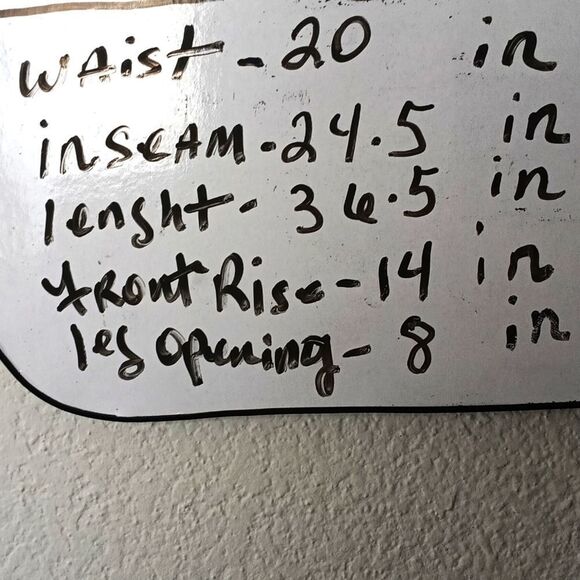 waist - 20 in
inseam - 24.5 in
lenght - 36.5 in
front Rise - 14 in
leg opening - 8 in